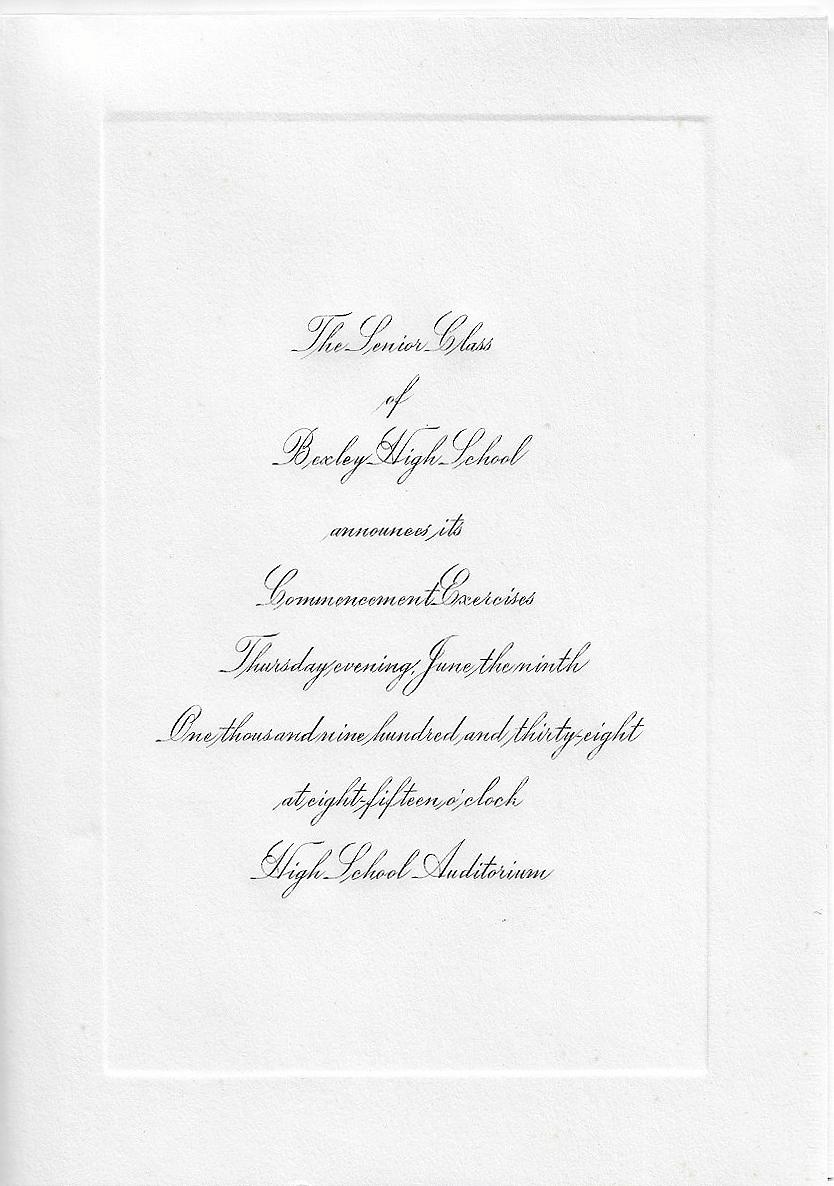 The Senior Class
of
Bexley High School
announces its
Commencement Exercises
Thursday evening, June the ninth
One thousand nine hundred and thirty-eight
at eight-fifteen o'clock
High School Auditorium